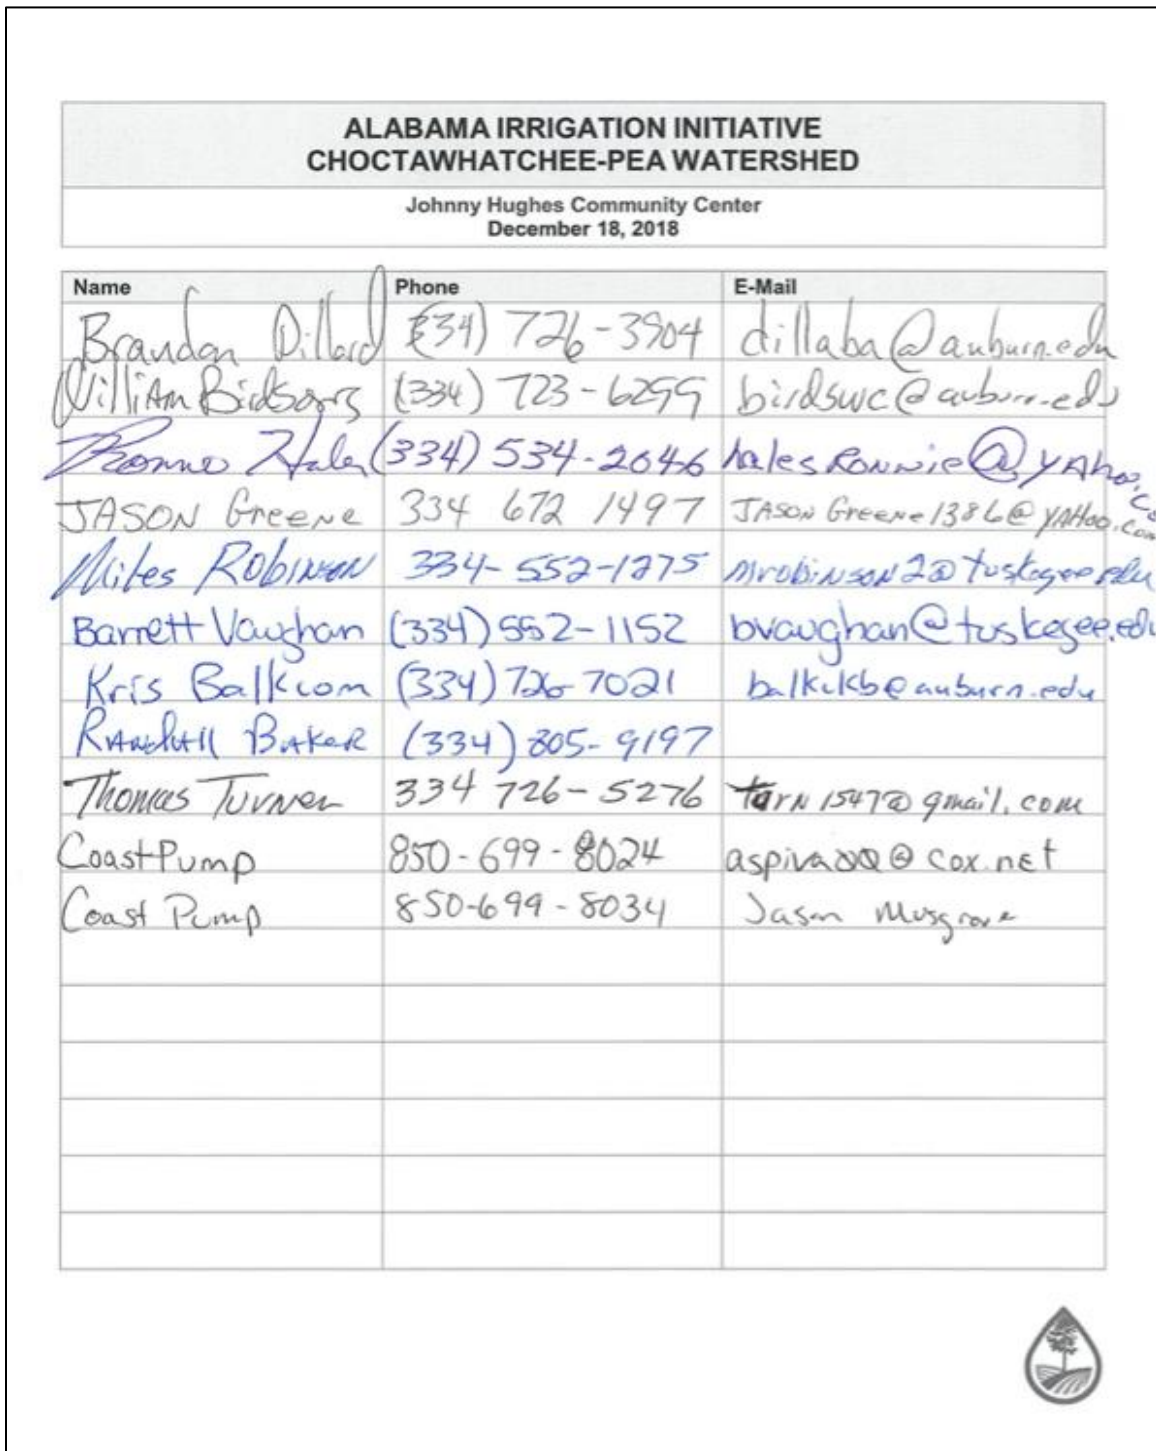 ALABAMA IRRIGATION INITIATIVE
CHOCTAWHATCHEE-PEA WATERSHED
Johnny Hughes Community Center
December 18, 2018
Name Phone E-Mail
Brandon Dillard (334) 726-3904 dillaba@auburn.edu
William Birdsong (334) 723-6299 birdswc@auburn.edu
(334) 534-2046 halesRonnie@yahoo.co
JASON Greene 334 672 1497 JASON Greene1386@YAHoo.com
Miles Robinson 334-552-1275 mrobinson2@tuskegee.edu
Barrett Vaughan (334) 552-1152 bvaughan@tuskegee.edu
Kris Balkcom (334) 726-7021 balkckb@auburn.edu
Randall Baker (334) 805-9197
Thomas Turner 334 726-5276 turn1547@gmail.com
Coast Pump 850-699-8024 @cox.net
Coast Pump 850-699-8034 Jason Musgrove